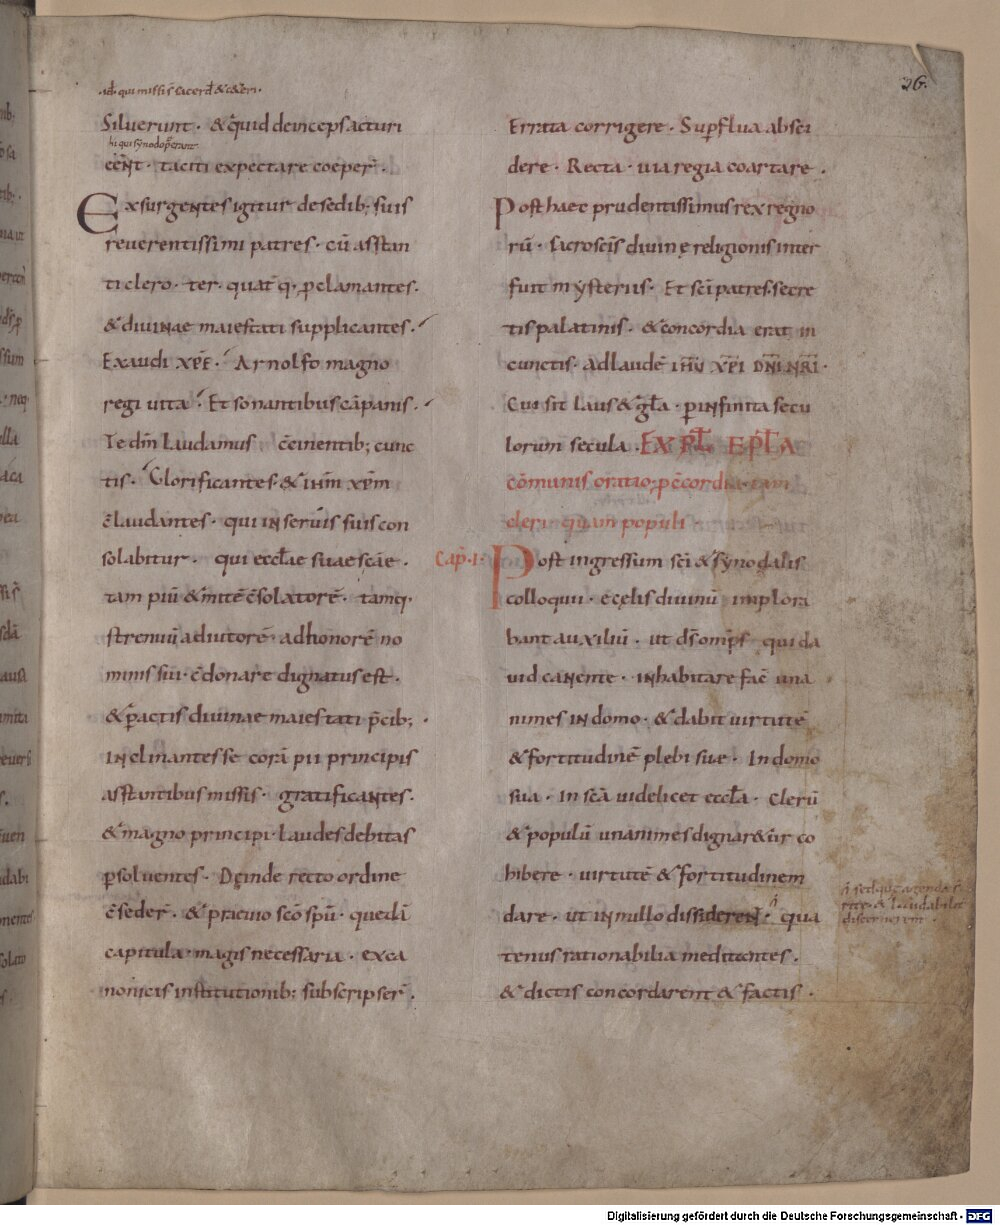 26.
.id. qui missi st sacerd & cęteri.
Siluerunt · & quid deinceps acturi
hi qui synodo p̄erant
eēnt · taciti expectare coeper̄ ·
Exsurgentes igitur de sedib; suis
reuerentissimi patres · cū asstan
ti clero · ter · quat̄ q · p clamantes ·
& diuinae maiestati supplicantes ·
Exaudi xp̄e · Arnolfo magno
regi uita · Et sonantibus cāpanis ·
Te dm̄ Laudamus c̄cinentib; cunc
tis · Glorificantes & ihm̄ xp̄m
c̄laudantes · qui in seruis suis con
solabitur · qui eccłae suae scāe ·
tam piū & mitē c̄solatorē · tamq·
strenuū adiutorē · ad honorē no
minis sui · c̄donare dignatus est ·
& pactis diuinae maiestati p̄cib; ·
Inclinantes se corā pii principis
asstantibus missis · gratificantes ·
& magno principi · Laudes debitas
psoluentes · Deinde recto ordine
c̄seder̄ · & praeuio scō spū · quedā
capitula · magis necessaria · exca
nonicis institutionib; subscripser̄ ·
Errata corrigere · Supflua absci
dere · Recta · uia regia coartare ·
Post haec prudentissimus rex regno
rū · sacroscīs diuinę religionis inter
fuit mysteriis · Et scī patres secre
tis palatinis · & concordia erat in
cunctis · Ad laudē ihū xpī dnī nrī ·
Cui sit Laus & gła · p infinita secu
lorum secula · Expł epła
cōmunis oratio; p c̄cordia tam
cleri · quam populi
Cap · I · Post ingressum scī & synodalis
colloquii · e cęlis diuinū implora
bant auxiliū · ut ds̄ omps̄ · qui da
uid canente · inhabitare fac̄ una
nimes in domo · & dabit uirtutē
& fortitudinē plebi suae · In domo
sua · in scā uidelicet eccła · Clerū
& populū unanimes dignaretur co
hibere · uirtutē & fortitudinem
dare · ut in nullo dissiderent · qua
tenus rationabilia meditantes ·
& dictis concordarent & factis ·
sed quę agenda st
rite · & laudabilit
discernerent ·
Digitalisierung gefördert durch die Deutsche Forschungsgemeinschaft - DFG